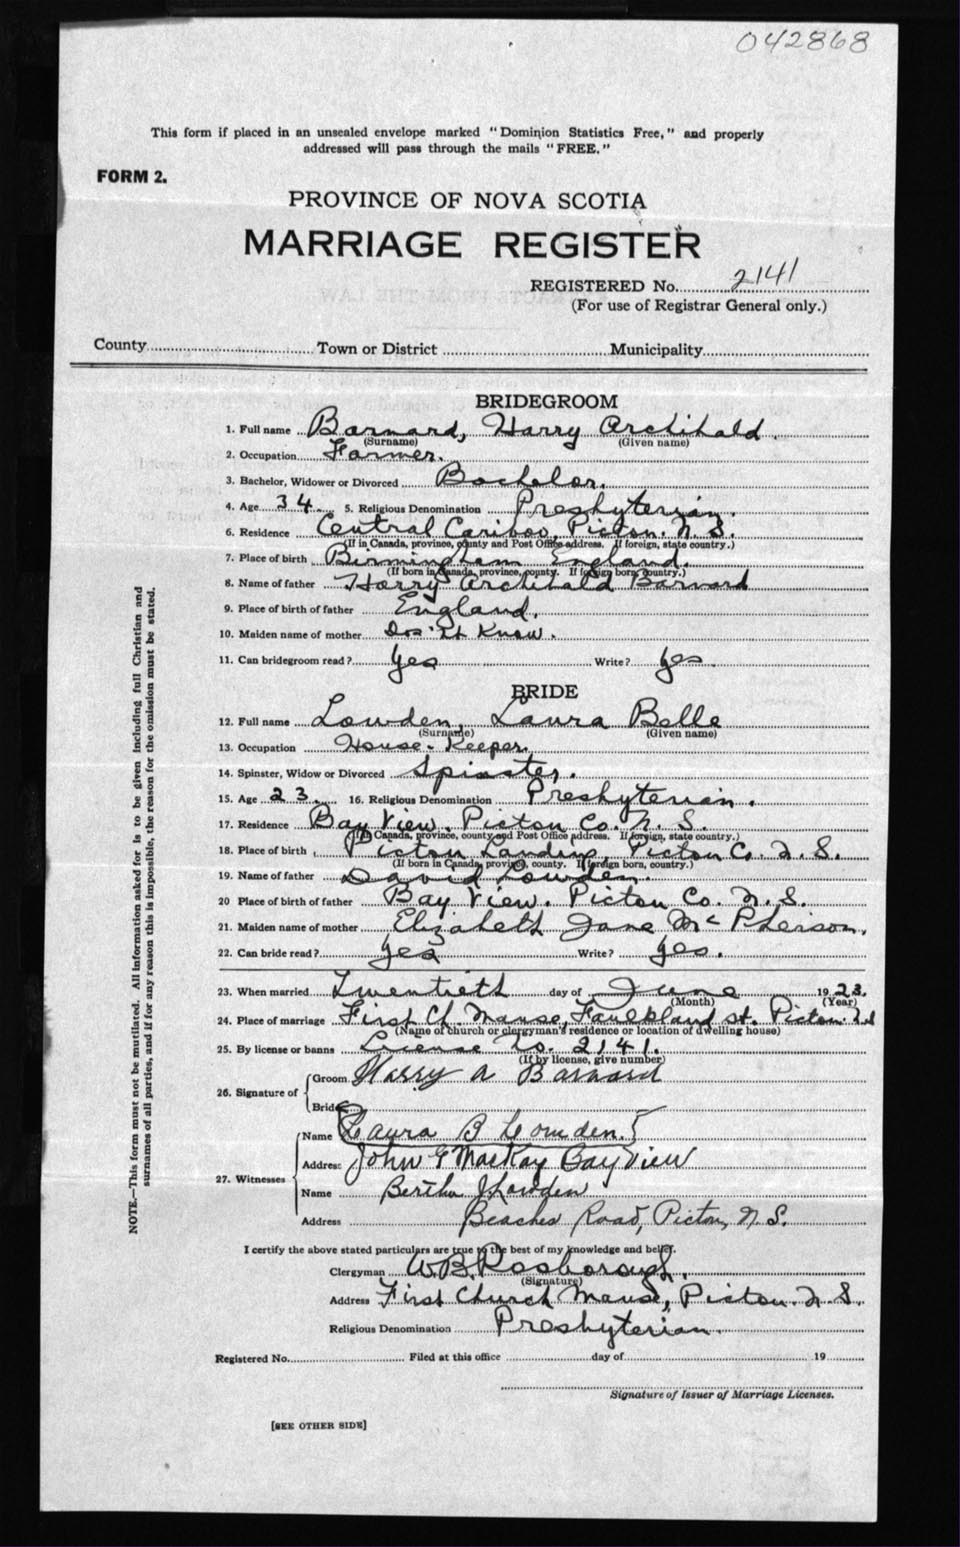 042868
This form if placed in an unsealed envelope marked "Dominion Statistics Free," and properly
addressed will pass through the mails "FREE."
FORM 2.
PROVINCE OF NOVA SCOTIA
MARRIAGE REGISTER
REGISTERED No. 2141
(For use of Registrar General only.)
County Town or District Municipality
BRIDEGROOM
1. Full name Barnard, Harry Archibald
(Surname) (Given name)
2. Occupation Farmer.
3. Bachelor, Widower or Divorced Bachelor.
4. Age 34 5. Religious Denomination Presbyterian.
6. Residence Central Cariboo, Pictou. N. S.
(If in Canada, province, county and Post Office address. If foreign, state country.)
7. Place of birth Birmingham England.
(If born in Canada, province, county. If foreign born, country.)
8. Name of father Harry Archibald Barnard
9. Place of birth of father England.
10. Maiden name of mother Don't Know.
11. Can bridegroom read? Yes Write? Yes.
BRIDE
12. Full name Lowden, Laura Belle
(Surname) (Given name)
13. Occupation House-Keeper.
14. Spinster, Widow or Divorced Spinster.
15. Age 23. 16. Religious Denomination Presbyterian.
17. Residence Bay View. Pictou Co. N. S.
(If in Canada, province, county and Post Office address. If foreign, state country.)
18. Place of birth Pictou Landing, Pictou Co. N. S.
(If born in Canada, province, county. If foreign born, country.)
19. Name of father David Lowden.
20 Place of birth of father Bay View. Pictou Co. N. S.
21. Maiden name of mother Elizabeth Jane McPherson.
22. Can bride read? Yes Write? Yes.
23. When married Twentieth day of June 1923.
(Month) (Year)
24. Place of marriage First Ch. Manse, Faulkland St. Pictou. N S
(Name of church or clergyman's residence or location of dwelling house)
25. By license or banns License No. 2141.
(If by license, give number)
26. Signature of Groom Harry A Barnard
Bride
27. Witnesses
Name Laura B Lowden.
Address John G MacKay Bayview
Name Bertha J Lowden
Address Beaches Road, Pictou, N. S.
I certify the above stated particulars are true to the best of my knowledge and belief.
Clergyman W. B. Rosborough.
(Signature)
Address First Church Manse, Pictou. N S.
Religious Denomination Presbyterian.
Registered No. Filed at this office day of 19
Signature of Issuer of Marriage Licenses.
[SEE OTHER SIDE]
NOTE.—This form must not be mutilated. All information asked for is to be given including full Christian and
surnames of all parties, and if for any reason this is impossible, the reason for the omission must be stated.